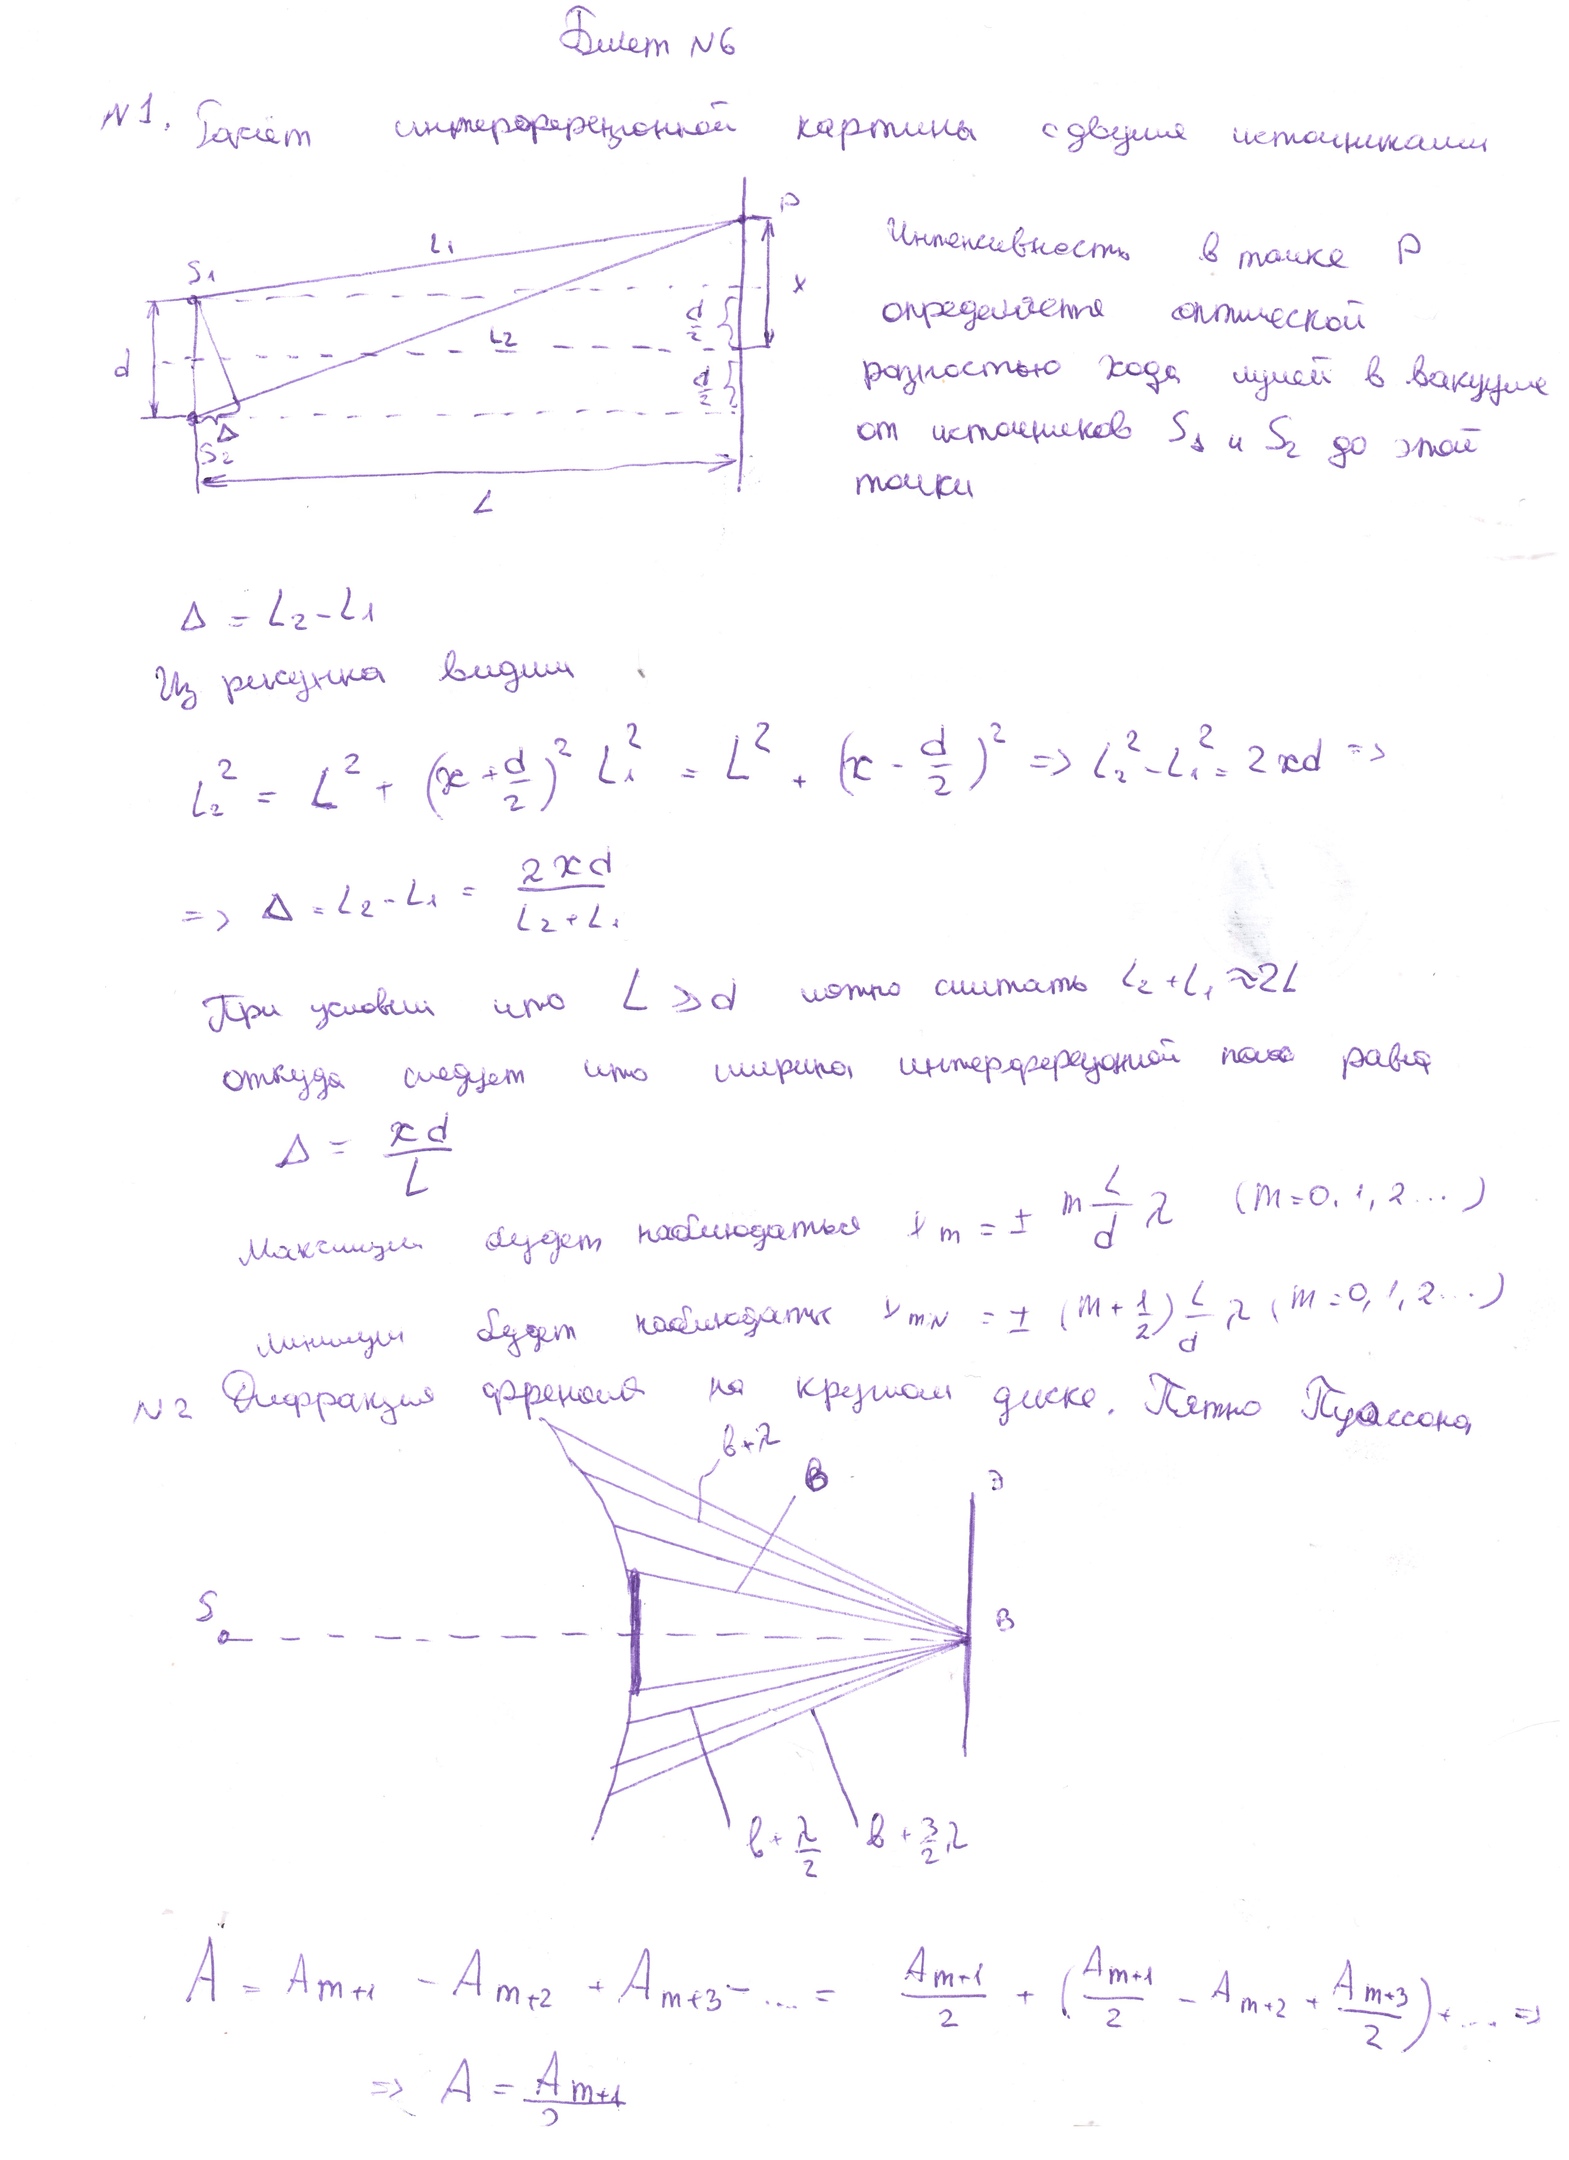 Билет N6
N1. Расчёт интерференционной картины с двумя источниками
S1
L1
P
x
d/2
L2
d/2
d
Δ
S2
L
Интенсивность в точке P
определяется оптической
разностью хода лучей в вакууме
от источников S1 и S2 до этой
точки
Δ = L2 - L1
Из рисунка видим
L2² = L² + (x + d/2)² L1² = L² + (x - d/2)² => L2² - L1² = 2xd =>
=> Δ = L2 - L1 = 2xd/(L2 + L1)
При условии что L ≫ d можно считать L2 + L1 ≈ 2L
откуда следует что ширина интерференционной равна
Δ = xd/L
Максимум будет наблюдаться x m = ± m L/d λ (m = 0, 1, 2 ...)
минимум будет наблюдаться x min = ± (m + 1/2) L/d λ (m = 0, 1, 2 ...)
N2 Дифракция френеля на круглом диске. Пятно Пуассона
b+λ
B
Э
S
B
b + λ/2
b + 3/2 λ
A = Am+1 - Am+2 + Am+3 - ... = Am+1/2 + (Am+1/2 - Am+2 + Am+3/2) + ... =>
=> A = Am+1/2